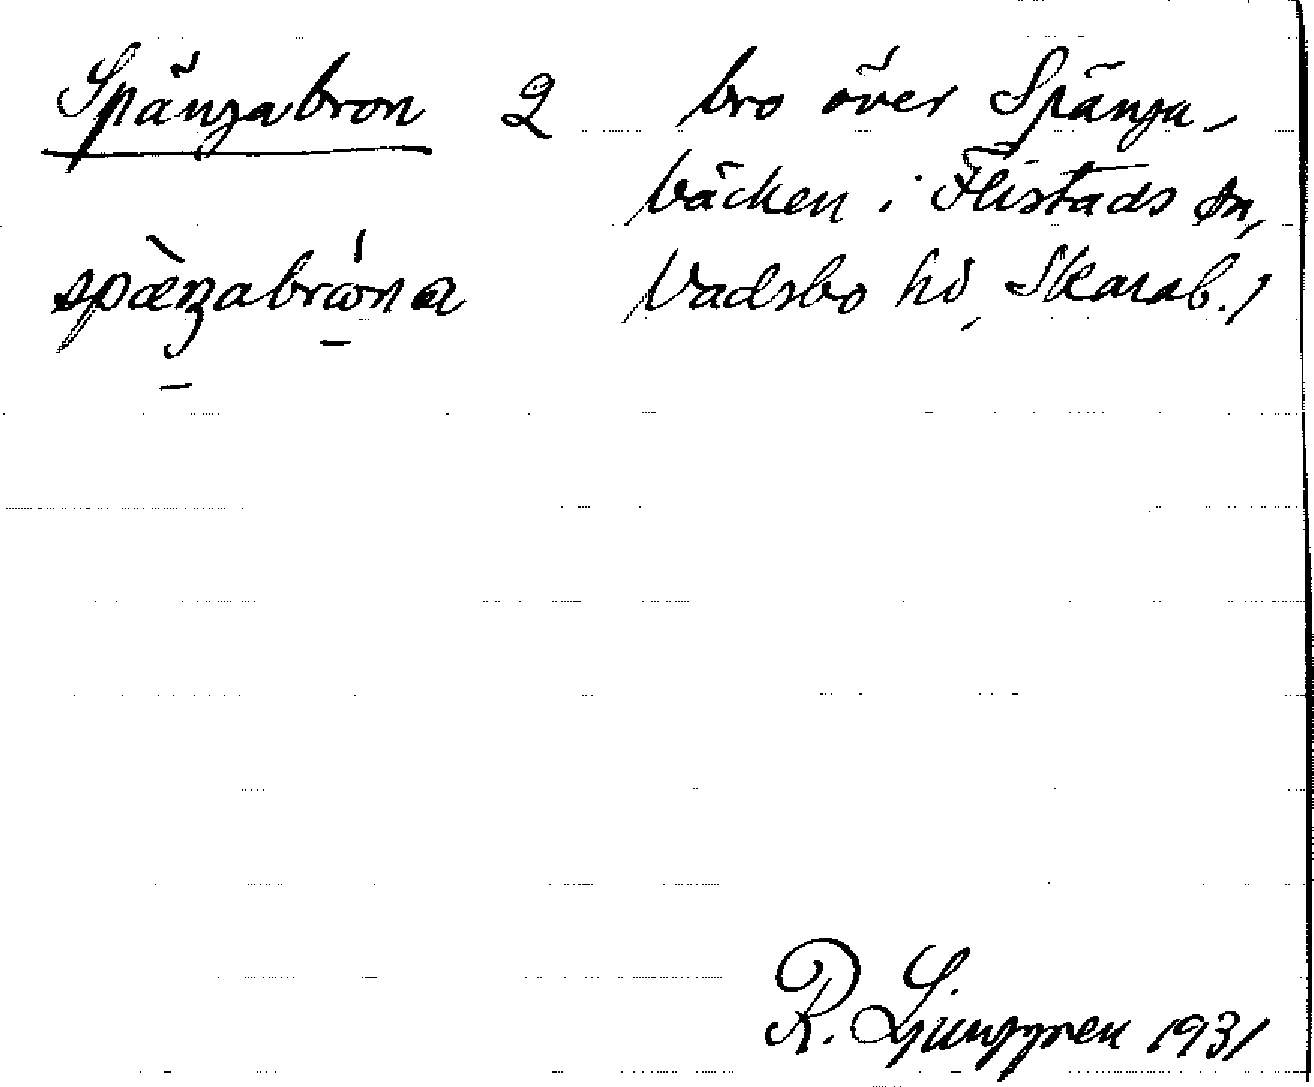 Spångabron 2 bro över Spånga-
bäcken i Flistads sn,
Vadsbo hd, Skarab.l
R. Ljunggren 1931